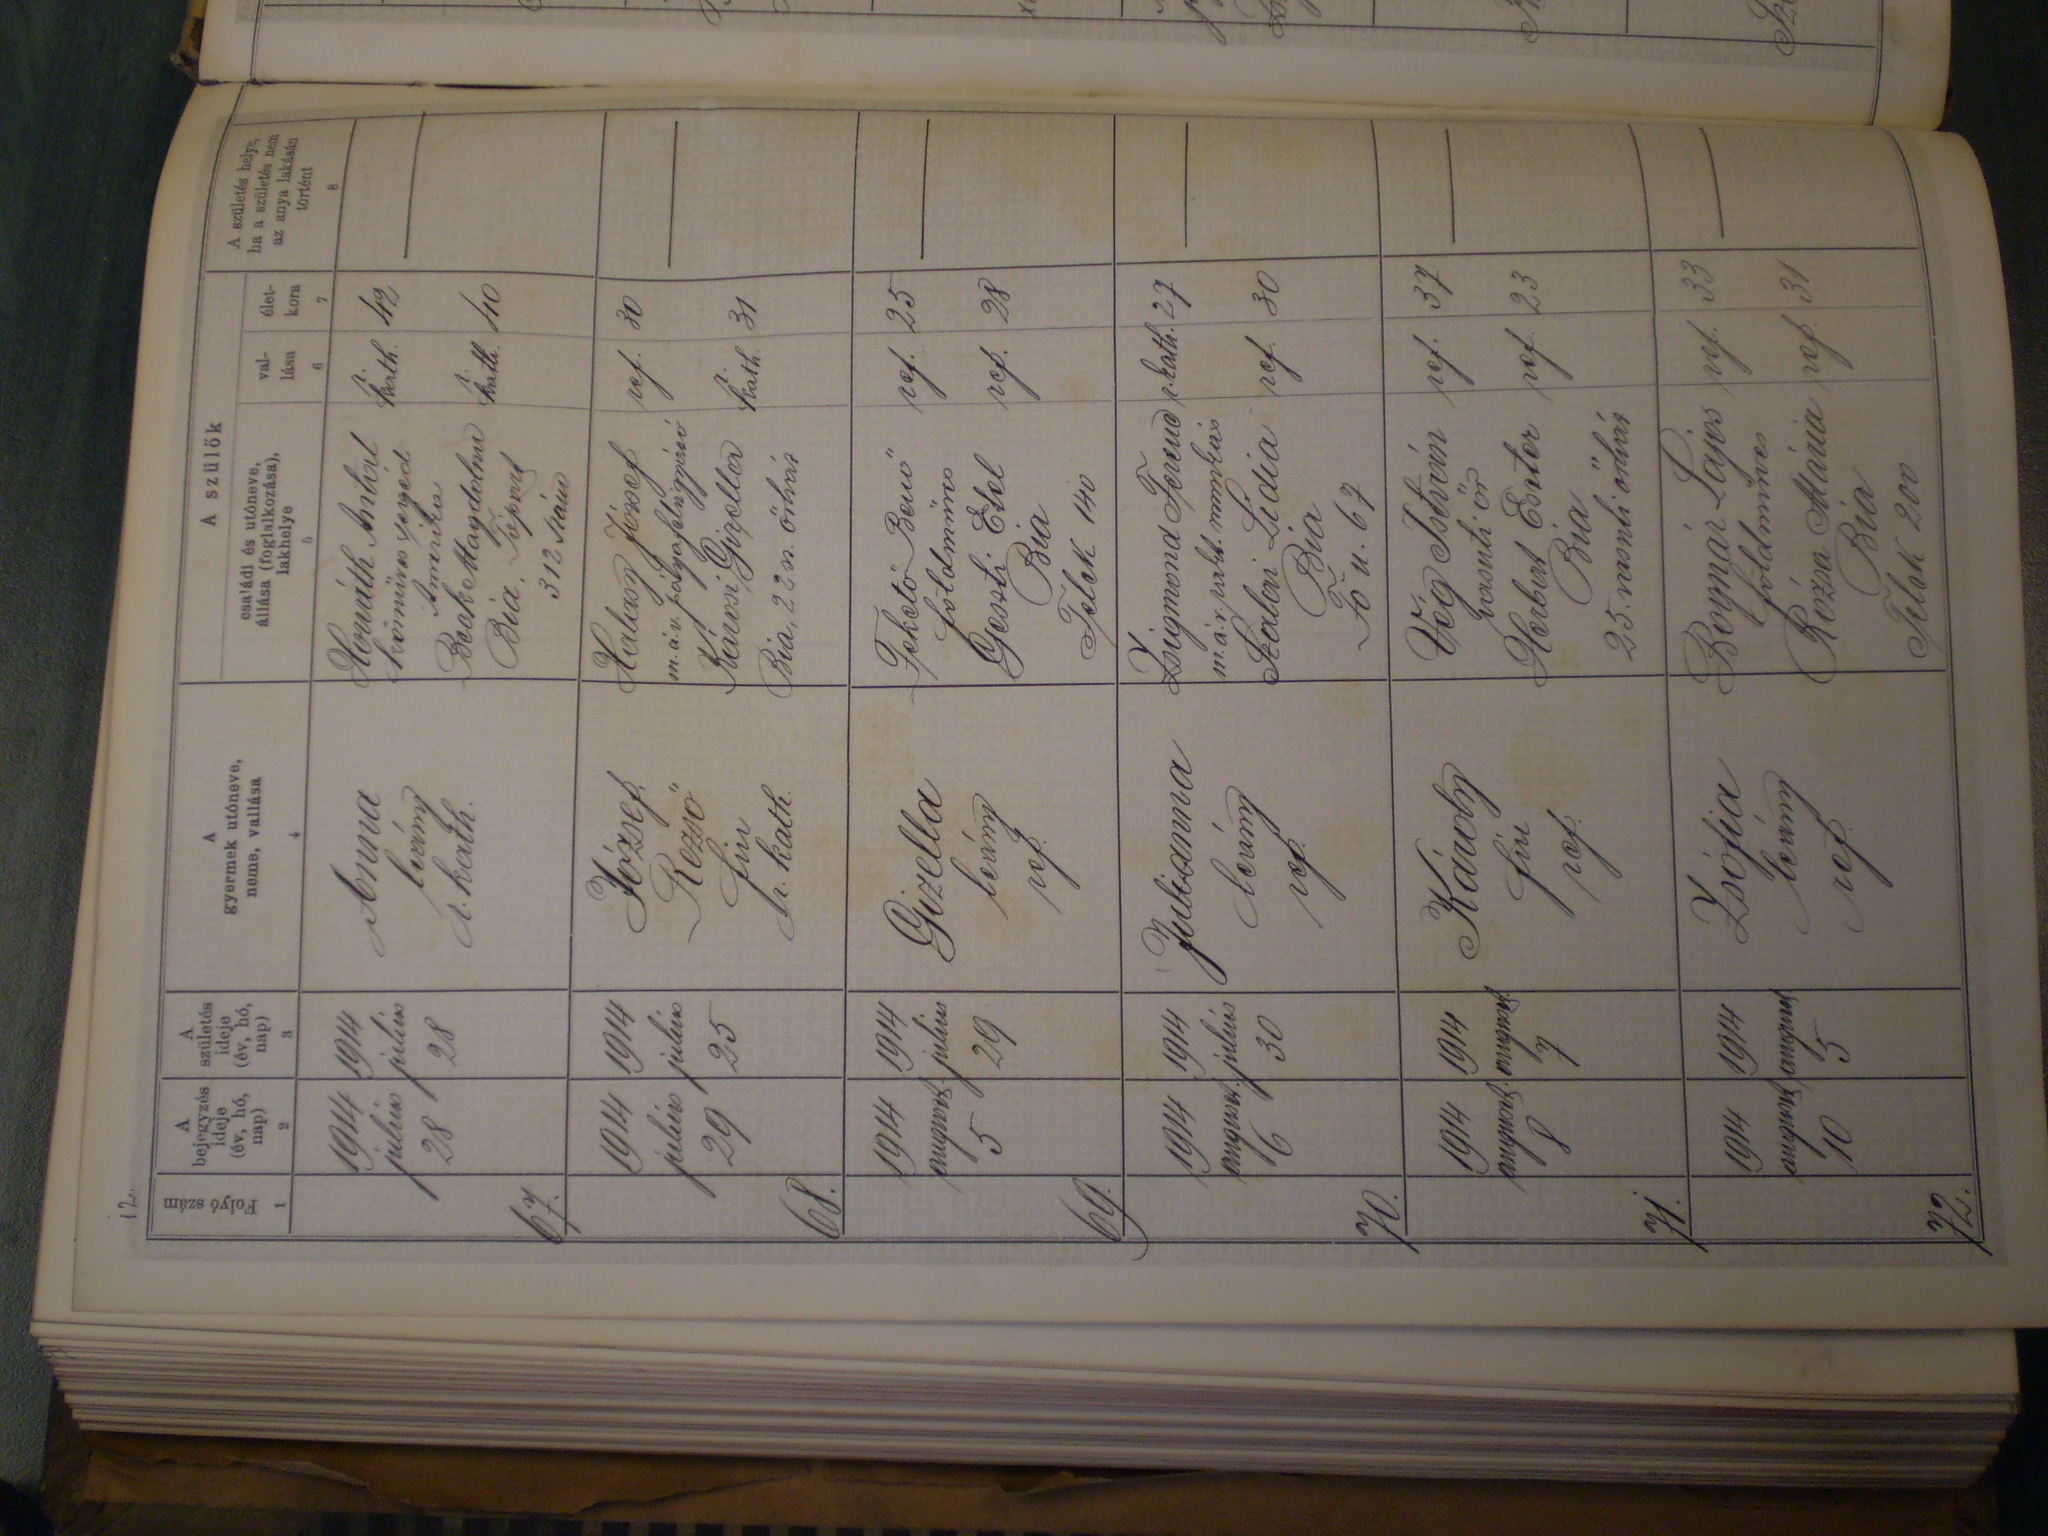 12.
Folyó szám
A
bejegyzés
ideje
(év, hó,
nap)
A
születés
ideje
(év, hó,
nap)
A
gyermek utóneve,
neme, vallása
A szülők
családi és utóneve,
állása (foglalkozása),
lakhelye
val-
lása
élet-
kora
A születés helye,
ha a születés nem
az anya lakásán
történt
1
2
3
4
5
6
7
8
67.
1914
julius
28
1914
julius
28
Anna
leány
r. kath.
Horváth Antal
kőműves segéd
Amerika
Beck Magdolna
Bia,
312 szám
r.
kath.
42
r.
kath.
40
68.
1914
julius
29
1914
julius
25
József
Rezső
fiu
r. kath.
Halasy József
m. á. v. pályafelügyelő
Gizella
Bia, 22 sz. őrház
ref.
30
r.
kath.
31
69.
1914
august.
5
1914
julius
29
Gizella
leány
ref.
Fekete Benő
földműves
Geszti Etel
Bia
Telek 140
ref. 25
ref. 28
70.
1914
august.
6
1914
julius
30
Julianna
leány
ref.
Zsigmond Ferenc
m. á. v. rakt. munkás
Szalai Lidia
Bia
Fő u. 67
r. kath. 27
ref. 30
71.
1914
august.
8
1914
august.
7
Károly
fiu
ref.
Vég István
vasuti őr
Herbat Eszter
Bia
25. vasuti őrház
ref. 37
ref. 23
72.
1914
august
10
1914
august
5
Zsófia
leány
ref.
Bognár Lajos
földműves
Rózsa Mária
Bia
Telek 200
ref. 33
ref. 31